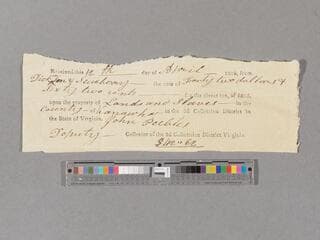 Received this 12th day of April 1816, from
Dickens & Swathoars the sum of Forty two dollars &
Sixty two cents for the direct tax, of 1815,
upon the property of Lands and Slaves in the
County of Kanawha in the 2d Collection District in
the State of Virginia. John Peebles
Deputy Collector of the 2d Collection District Virginia.
$42.62